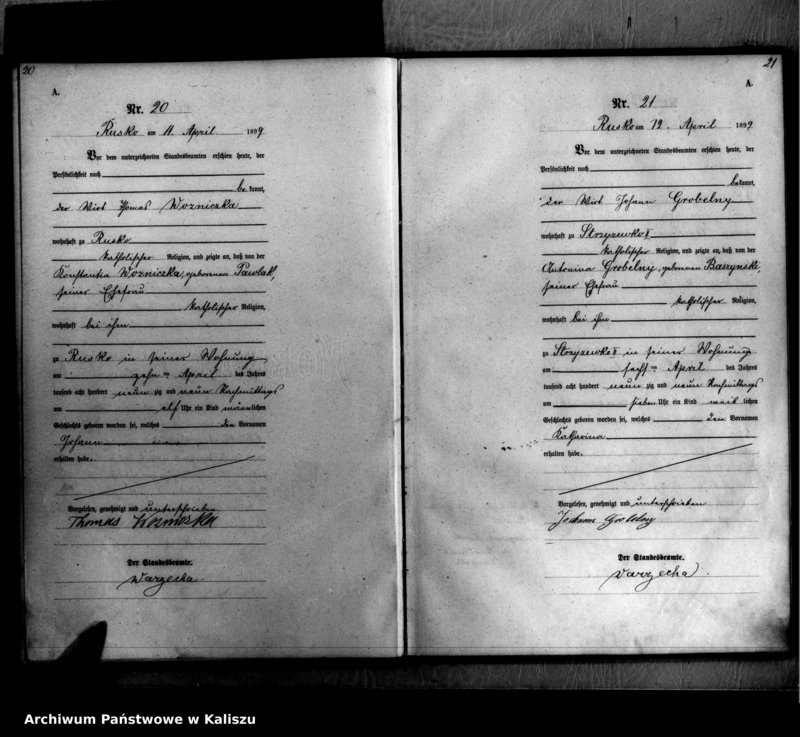 20
A.
Nr. 20
Rusko am 11. April 1899
Vor dem unterzeichneten Standesbeamten erschien heute, der
Persönlichkeit nach
be kannt,
der Wirt Thomas Wozniczka
wohnhaft zu Rusko
katholischer Religion, und zeigte an, daß von der
Konstantia Wozniczka, geborenen Pawlak,
seiner Ehefrau
katholischer Religion,
wohnhaft bei ihm
zu Rusko in seiner Wohnung
am zehnten April des Jahres
tausend acht hundert neun zig und neun Nachmittags
um elf Uhr ein Kind männlichen
Geschlechts geboren worden sei, welches den Vornamen
Johann
erhalten habe.
Vorgelesen, genehmigt und unterschrieben
Thomas
Der Standesbeamte.
Warzecha.
21
A.
Nr. 21
Rusko am 12. April 1899
Vor dem unterzeichneten Standesbeamten erschien heute, der
Persönlichkeit nach
be kannt,
der Wirt Johann Grobelny
wohnhaft zu Strzyzewko II
katholischer Religion, und zeigte an, daß von der
Antonina Grobelny, geborenen Baszynski,
seiner Ehefrau
katholischer Religion,
wohnhaft bei ihm
zu Strzyzewko II in seiner Wohnung
am sechsten April des Jahres
tausend acht hundert neun zig und neun Nachmittags
um sieben Uhr ein Kind weib lichen
Geschlechts geboren worden sei, welches den Vornamen
Katharina
erhalten habe.
Vorgelesen, genehmigt und unterschrieben
Johann Grobelny
Der Standesbeamte.
Warzecha.
Archiwum Państwowe w Kaliszu